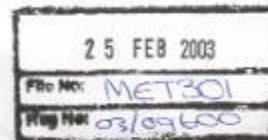 25 FEB 2003
File No: MET301
Reg No: 03/09600